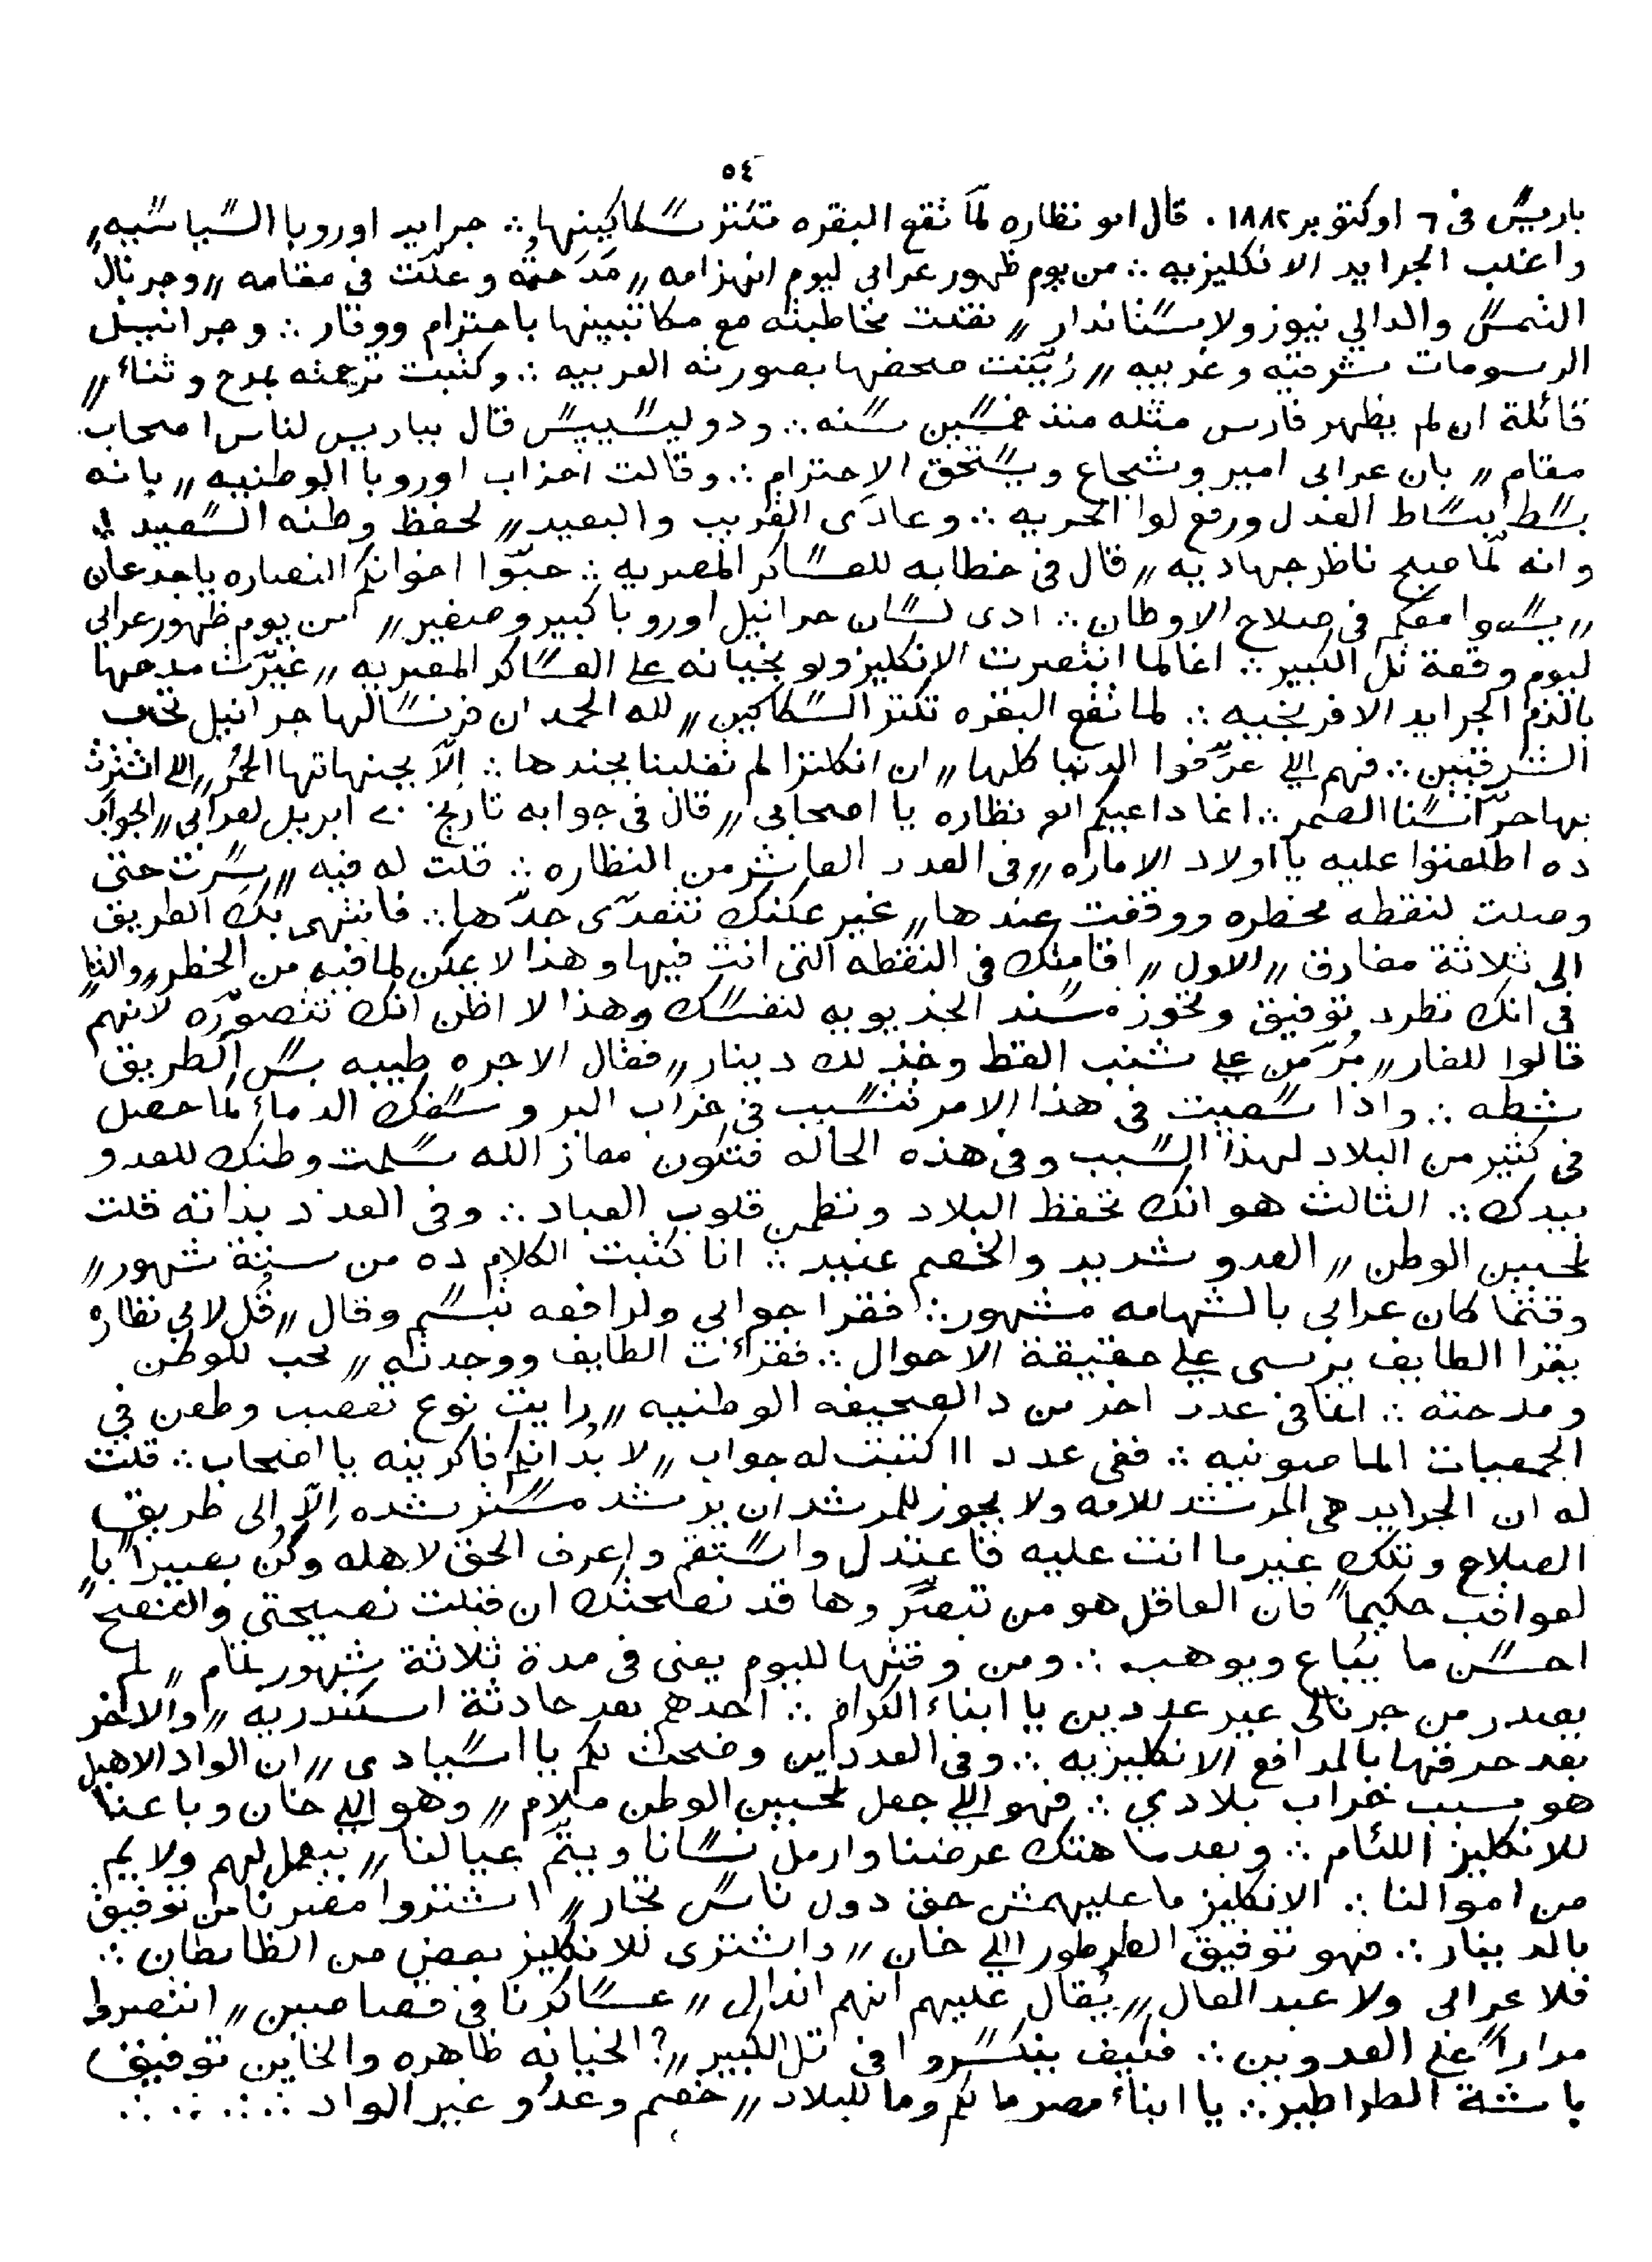 ٥٤
باريس فى ٦ اوكتوبر ١٨٨٢ . قال ابو نظاره لما تقع البقره تكتر سكاكينها ∴ جرايد اوروبا السياسيه ,,
واغلب الجرايد الانكليزيه ∴ من يوم ظهور عرابى ليوم انهزامه ,, مدحته وعلّت فى مقامه ,, وجرنال
الشمس والدالي نيوز ولا ستاندار ,, نقلت مخاطبته مع مكاتبينها باحترام ووقار ∴ وجرانيل
الرسومات شرقيه وغربيه ,, زيّنت صحفها بصورته العربيه ∴ وكتبت ترجمته بمدح وثناء ,,
قائلة ان لم يظهر فارس مثله منذ خمسين سنه ∴ ودوليسيبس قال بباريس لناس اصحاب
مقام ,, بان عرابى امير وشجاع ويستحق الاحترام ∴ وقالت احزاب اوروبا الوطنيه ,, بانه
بسط بساط العدل ورفع لوا الحريه ∴ وعادى القريب والبعيد ,, لحفظ وطنه السعيد ∴
وانه لما صبح ناظر جهاديه ,, قال فى خطابه للعساكر المصريه ∴ حبّوا اخوانكم النصاره ياجدعان
,, يسعوا معكم فى صلاح الاوطان ∴ ادى لسان جرانيل اوروبا كبير وصغير ,, من يوم ظهور عرابي
ليوم وقعة تل الكبير ∴ انما لما انتصرت الانكليز ولو بخيانه على العساكر المصريه ,, غيّرت مدحها
بالذم الجرايد الافرنجيه ∴ لما تقع البقره تكتر السكاكين ,, لله الحمد ان فرنسا لها جرانيل تحب
الشرقيين ∴ فهم اللي عرّفوا الدنيا كلها ,, ان انكلترا لم تغلبنا بجندها ∴ إلاّ بجنيهاتها الحُمُر ,, اللي اشترت
بها حرّاسنا الصمر ∴ انما داعيكم ابو نظاره يا اصحابى ,, قال فى جوابه تاريخ ٢٠ ابريل لعرابى ,, الجواب
ده اطلعتوا عليه يا اولاد الاماره ,, فى العدد العاشر من النظاره ∴ قلت له فيه ,, سرت حتى
وصلت لنقطه مخطره ووقفت عندها ,, غير يمكنك تتعدّى حدّها ∴ فانتهى بك الطريق
الى ثلاثة مفارق ,, الاول ,, اقامتك فى النقطه التى انت فيها وهذا لا يمكن لما فيه من الخطر ,, والثا
فى انك تطرد توفيق وتحوز مسند الخديويه لنفسك وهذا لا اظن انك تتصوّره لانهم
قالوا للفار ,, مُرّ من على شنب القط وخذ لك دينار ,, فقال الاجره طيبه بس الطريق
شطه ∴ واذا سعيت فى هذا الامر تتسبب فى خراب البر وسفك الدماء لما حصل
فى كثير من البلاد لهذا السبب وفى هذه الحاله فتكون معاز الله سلمت وطنك للعدو
بيدك ∴ الثالث هو انك تحفظ البلاد وتطمن قلوب العباد ∴ وفى العدد بذاته قلت
لمحبين الوطن ,, العدو شديد والخصم عنيد ∴ انا كتبت الكلام ده من ستة شهور ,,
وقتما كان عرابى بالشهامه مشهور ∴ فقرا جوابى ولرافعه تبسّم وقال ,, قُل لابي نظاره
يقرا الطايف يرسى على حقيقة الاحوال ∴ فقرائت الطايف ووجدته ,, محب للوطن
ومدحته ∴ انما فى عدد اخر من دالصحيفه الوطنيه ,, رايت نوع تعصب وطعن في
الجمعيات الماصونيه ∴ ففى عدد ١١ كتبت له جواب ,, لا بُد انكم فاكرينه يا اصحاب ∴ قلت
له ان الجرايد هى المرشد للامه ولا يجوز للمرشد ان يرشد مسترشده إلاّ الى طريق
الصلاح وتلك غير ما انت عليه فاعتدل واستقم واعرف الحق لاهله وكُن بصيراً با
لعواقب حكيماً فان العاقل هو من تبصّر وها قد نصحتك ان قبلت نصيحتى والنصح
احسن ما يُباع ويوهب ∴ ومن وقتها لليوم يعنى فى مدة ثلاثة شهور تمام ,, لم
يصدر من جرنالى غير عددين يا ابناء الكرام ∴ احدهم بعد حادثة اسكندريه ,, والاخر
بعد حرقها بالمدافع الانكليزيه ∴ وفى العددين وضحت لكم يا اسيادى ,, ان الواد الاهبل
هو سبب خراب بلادي ∴ فهو اللي جعل لمحبين الوطن ملام ,, وهو اللي خان وباعنا
للانكليز اللئام ∴ وبعد ما هتك عرضنا وارمل نسانا ويتّم عيالنا ,, بيعمل لهم ولايم
من اموالنا ∴ الانكليز ما عليهمش حق دول ناس تجار ,, اشتروا مصرنا من توفيق
بالدينار ∴ فهو توفيق الطرطور اللي خان ,, واشترى للانكليز بعض من الظابطان ∴
فلا عرابى ولا عبد العال ,, يُقال عليهم انهم اندال ,, عساكرنا فى قصاصين ,, انتصروا
مراراً على العدوين ∴ فكيف ينكسروا فى تل الكبير ,,? الخيانه ظاهره والخاين توفيق
باشة الطراطير ∴ يا ابناء مصر ما لكم وما للبلاد ,, خصم وعدُو غير الواد ∴ ∴ ∴ ∴